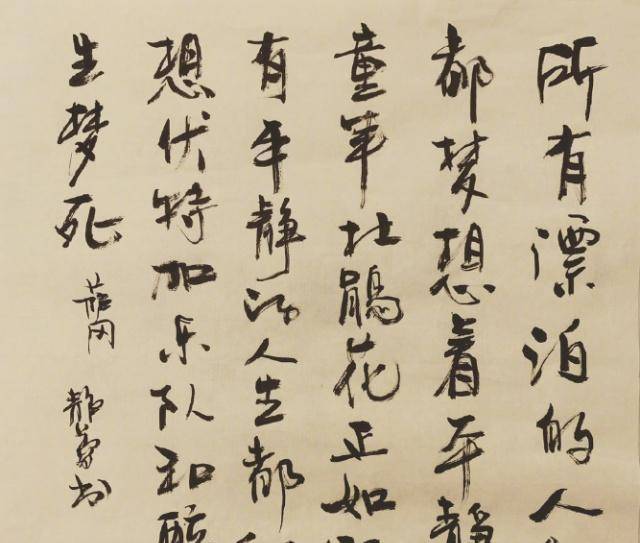 所有漂泊的人
都梦想着平静
童年杜鹃花正如
有平静的人生都
想伏特加乐队和醉
生梦死